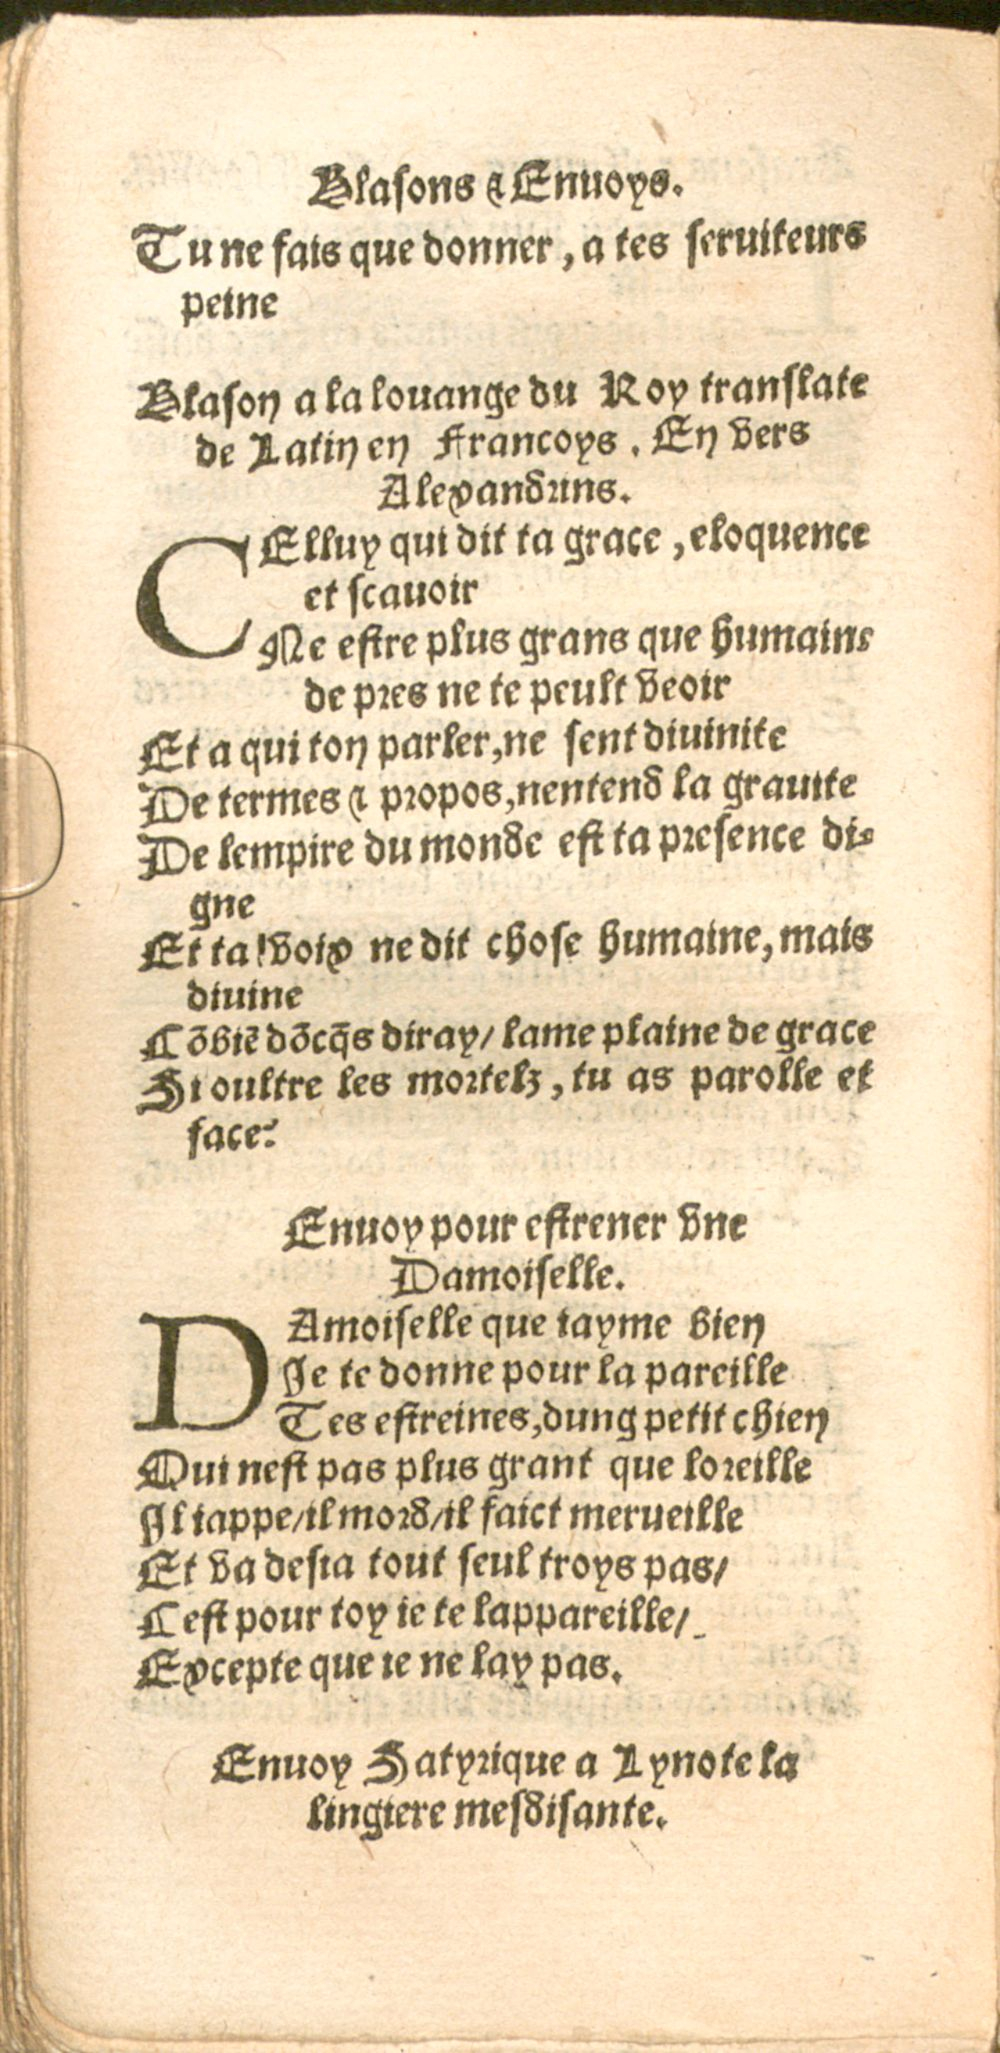 Blasons & Enuoys.
Tu ne fais que donner, a tes seruiteurs
peine
Blason a la louange du Roy translate
de Latin en Francoys. En vers
Alexandrins.
CElluy qui dit ta grace, eloquence
et scauoir
Ne estre plus grans que humains
de pres ne te peult veoir
Et a qui ton parler, ne sent diuinite
De termes & propos, nentend la grauite
De lempire du monde est ta presence di-
gne
Et ta voix ne dit chose humaine, mais
diuine
Cõbiẽ dõcq̃s diray/ lame plaine de grace
Si oultre les mortelz, tu as parolle et
face?
Enuoy pour estrener vne
Damoiselle.
DAmoiselle que iayme bien
Je te donne pour la pareille
Tes estreines, dung petit chien
Qui nest pas plus grant que loreille
Jl iappe/il mord/il faict merueille
Et va desia tout seul troys pas/
Cest pour toy ie te lappareille/
Excepte que ie ne lay pas.
Enuoy Satyrique a Lynote la
lingiere mesdisante.